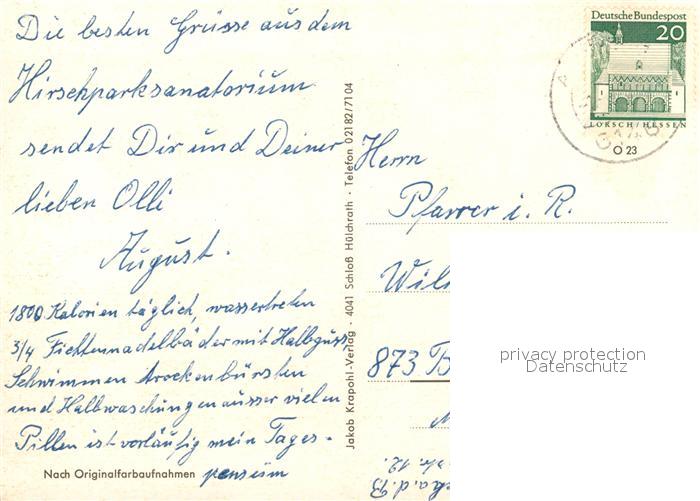 Die besten Grüsse aus dem
Hirschparksanatorium
sendet Dir und Deiner
lieben Olli
August.
1800 Kalorien täglich, wassertreten
3/4 Fichtennadelbäder mit Halbguss
Schwimmen Trockenbürsten
und Halbwaschungen ausser vielen
Pillen ist vorläufig mein Tages-
pensum
Nach Originalfarbaufnahmen
Jakob Krapohl-Verlag · 4041 Schloß Hülchrath · Telefon 02182/7104
Deutsche Bundespost
20
LORSCH/HESSEN
23
Herrn
Pfarrer i. R.
Wil
873 B
privacy protection
Datenschutz
a.d.
12.